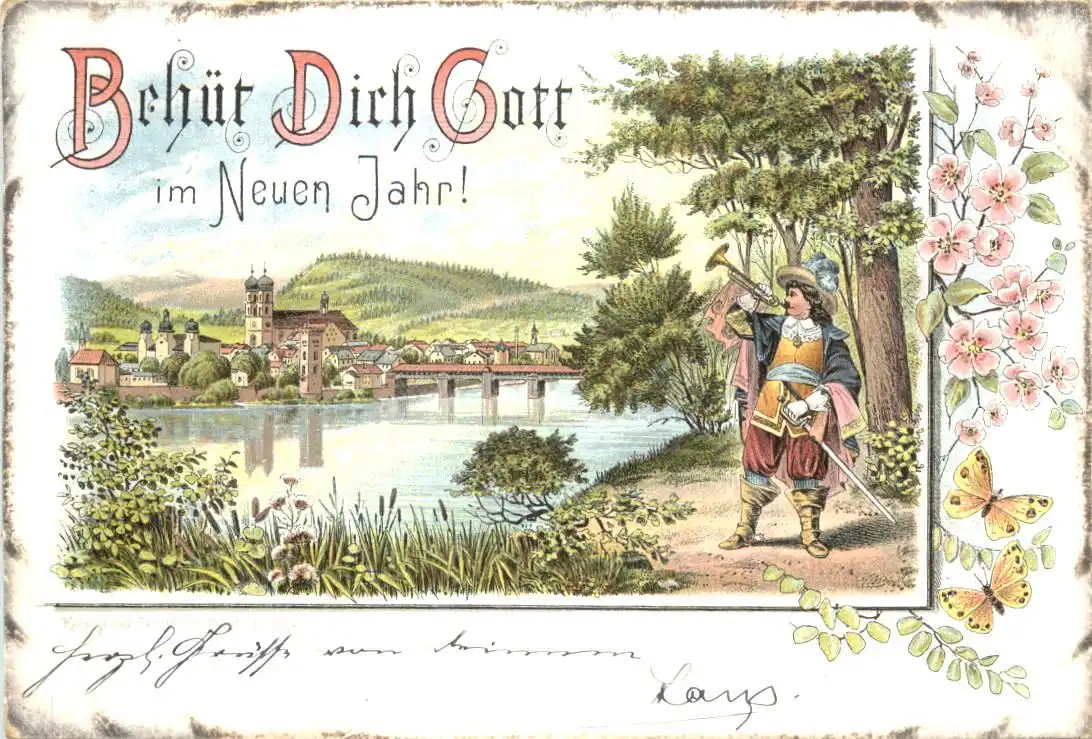 Behüt Dich Gott
im Neuen Jahr!
Herzl. Grüsse von deinem